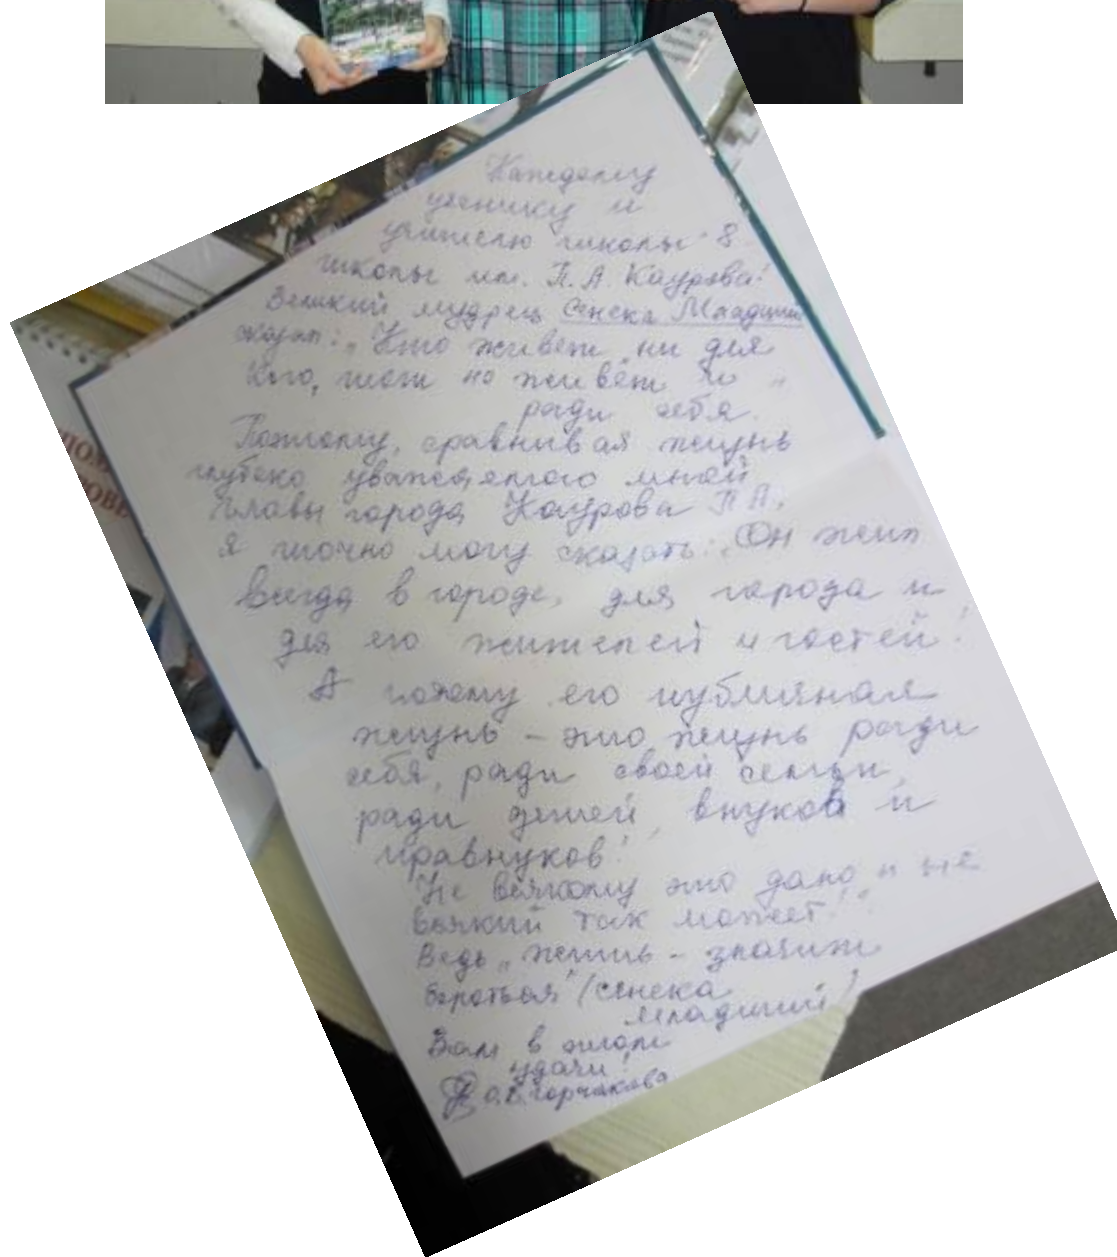 Каждому
ученику и
учителю школы 8
школы им. П.А Каурова!
Великий мудрец Сенека Младший
сказал: „Кто живёт ни для
кого, тот не живёт и
ради себя."
Поэтому, сравнивая жизнь
глубоко уважаемого мной
Главы города Каурова П А,
я точно могу сказать: „Он жил
всегда в городе, для города и
для его жителей и гостей!
А потому его публичная
жизнь – это жизнь ради
себя, ради своей семьи,
ради детей, внуков и
правнуков!
Не всякому это дано и не
всякий так может!"
Ведь „жить – значит
бороться" (Сенека
Младший)
Вам в этом
удачи!
О.В.Горчакова